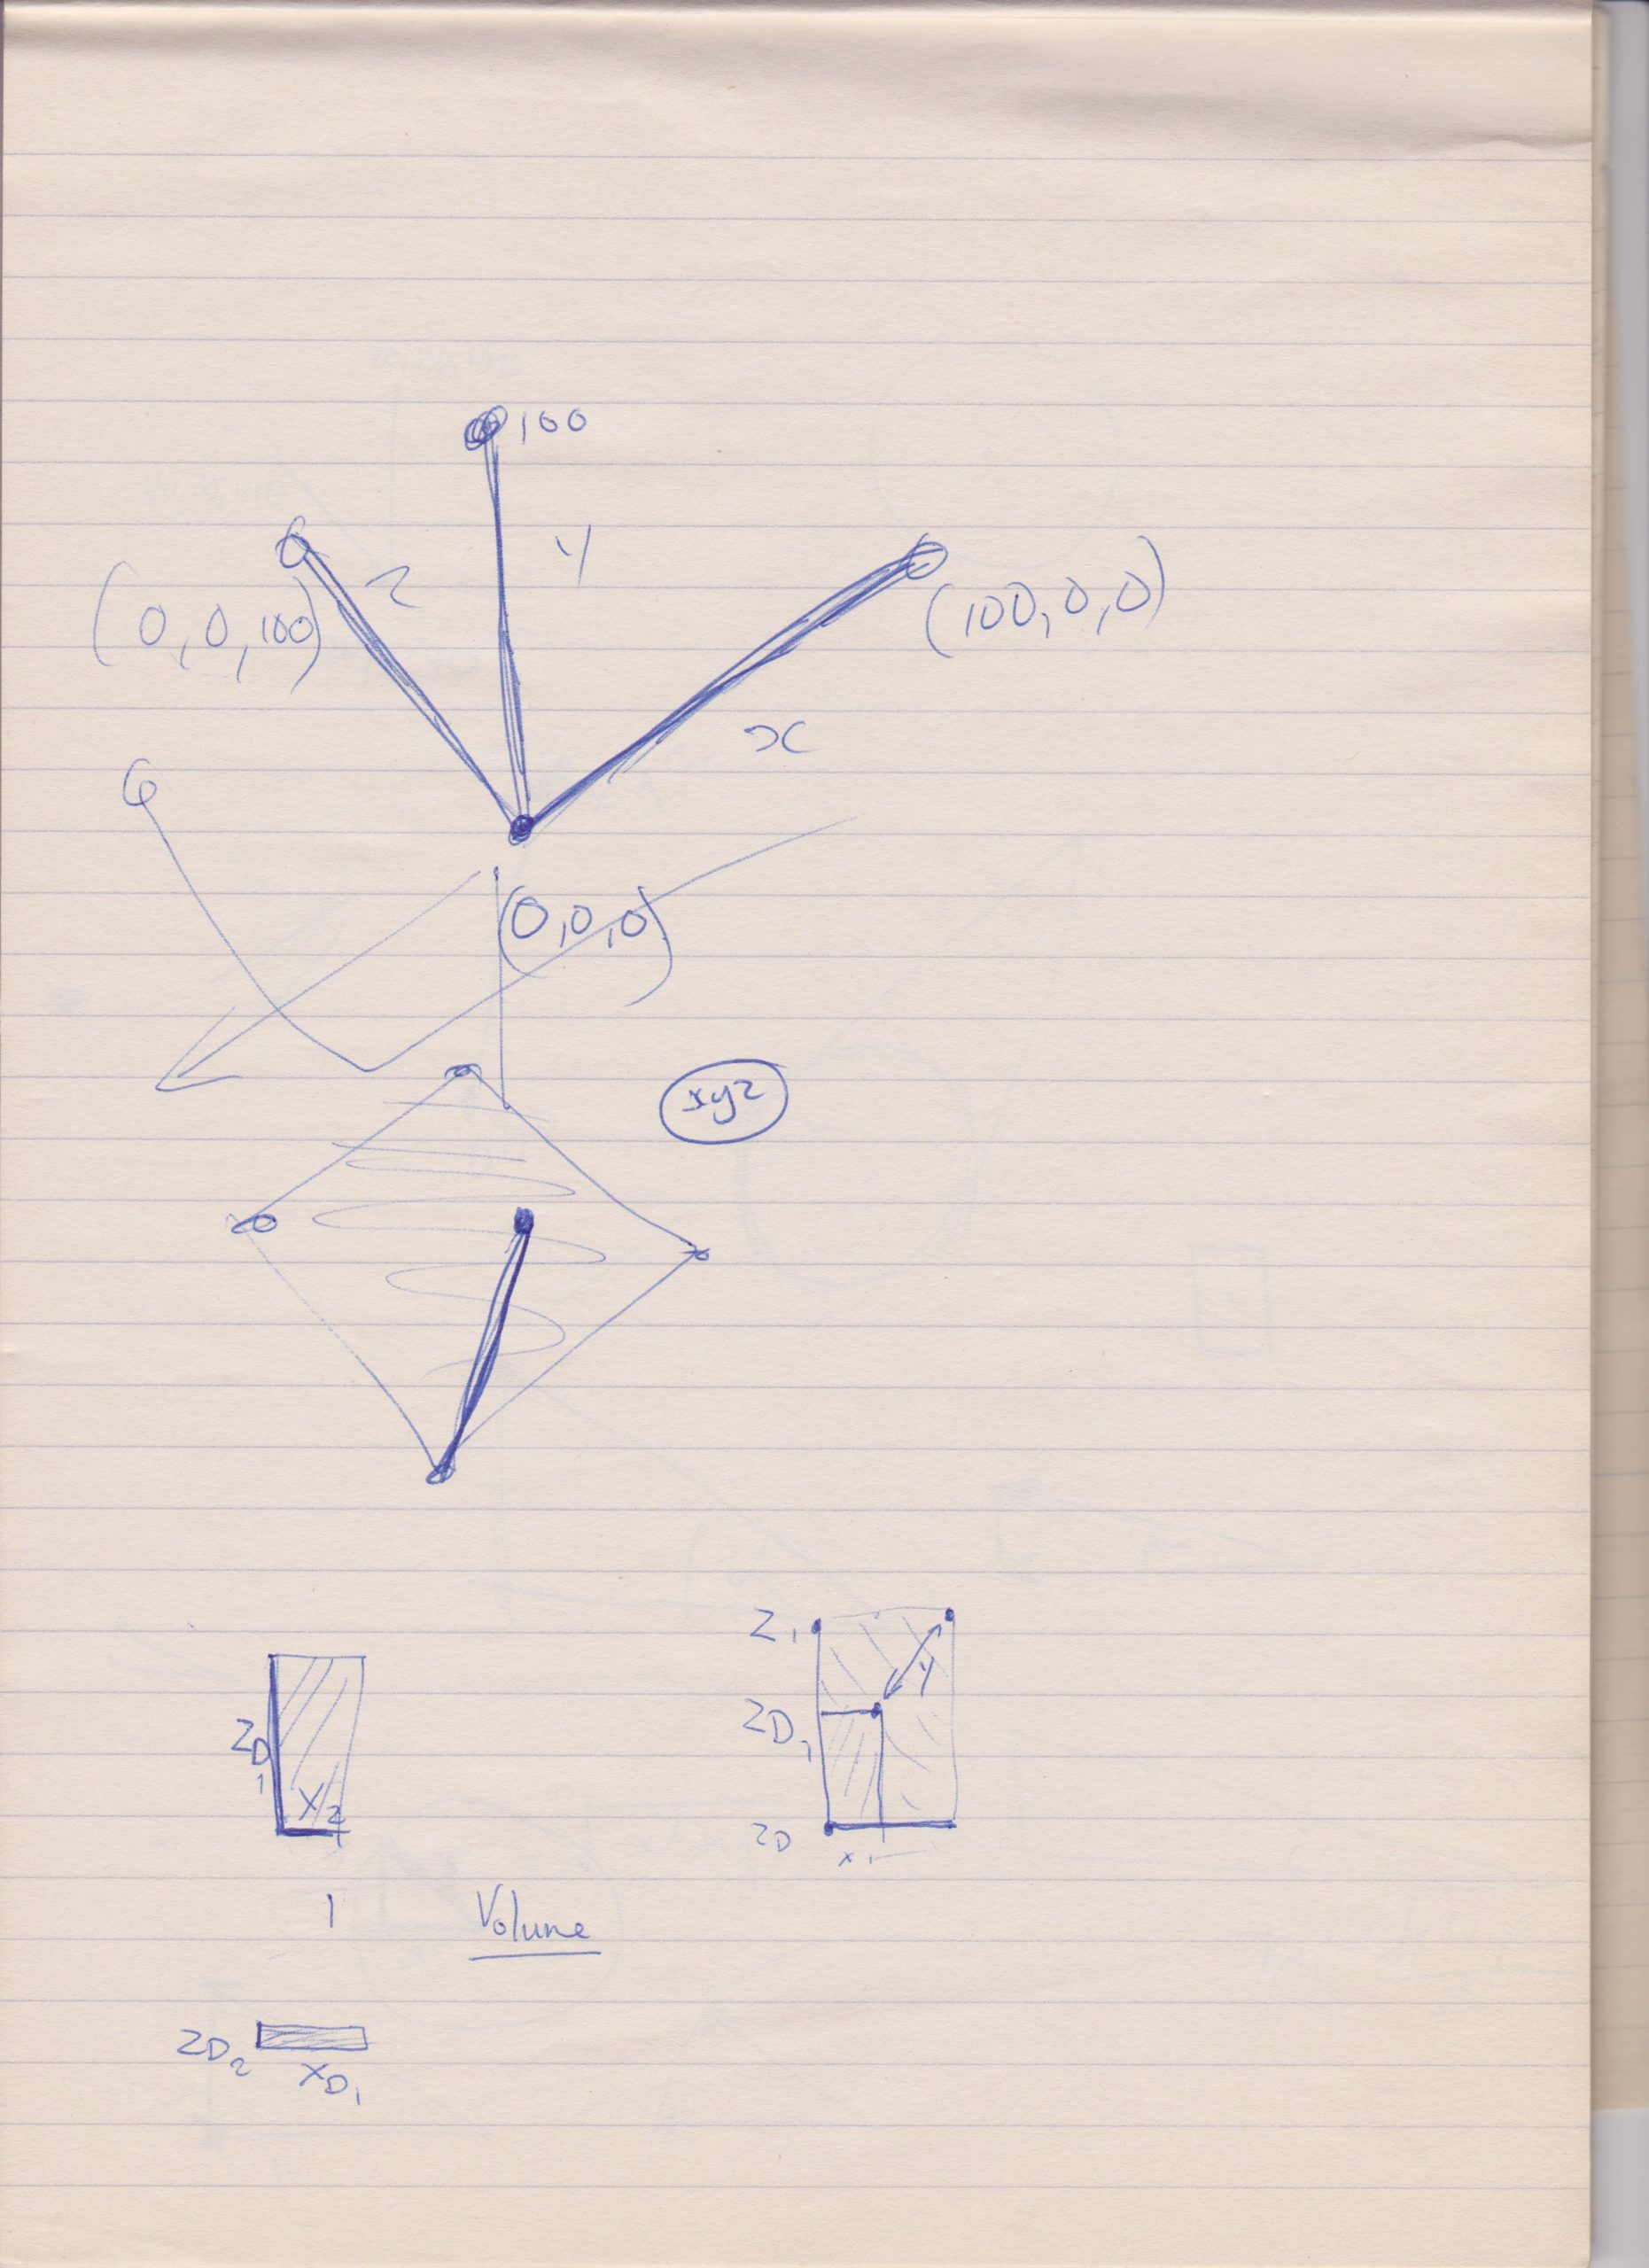 100
y
z
(0,0,100)
(100,0,0)
x
(0,0,0)
xyz
Z1
y
ZD1
ZD1
X2
ZD
x1
1
Volume
ZD2
XD1